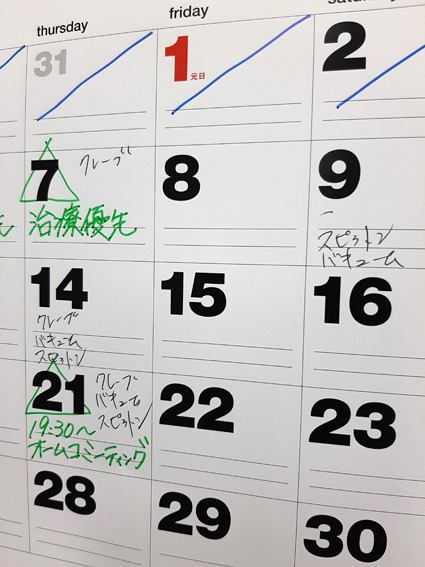 thursday
friday
31
1
元日
2
7
クレーブ
治療優先
8
9
スピットン
バキューム
14
クレーブ
バキューム
スピットン
15
16
21
クレーブ
バキューム
スピットン
19:30～
オームコミーティング
22
23
28
29
30